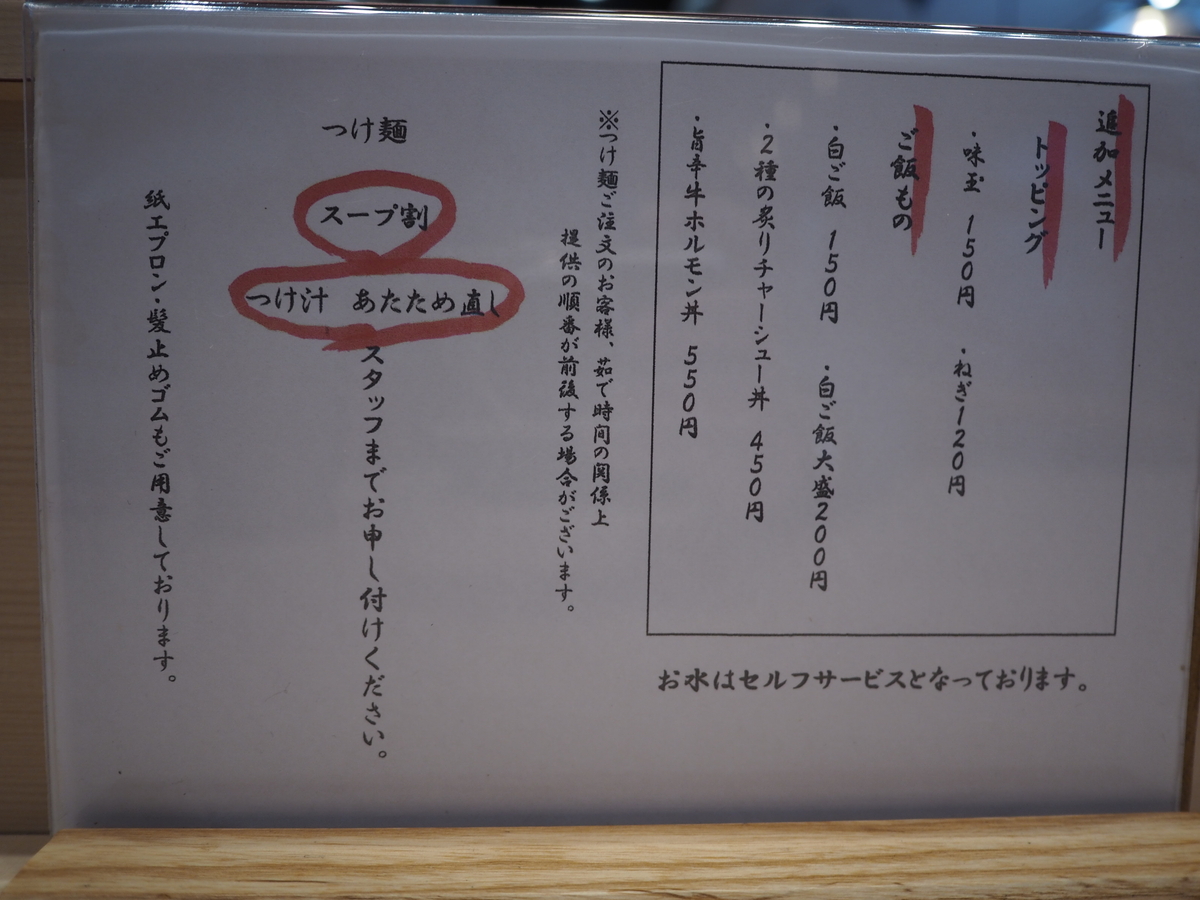 追加メニュー
トッピング
・味玉 150円 ・ねぎ120円
ご飯もの
・白ご飯 150円 ・白ご飯大盛200円
・2種の炙りチャーシュー丼 450円
・旨辛牛ホルモン丼 550円
お水はセルフサービスとなっております。
※つけ麺ご注文のお客様、茹で時間の関係上
提供の順番が前後する場合がございます。
つけ麺
スープ割
つけ汁 あたため直し
スタッフまでお申し付けください。
紙エプロン・髪止めゴムもご用意しております。